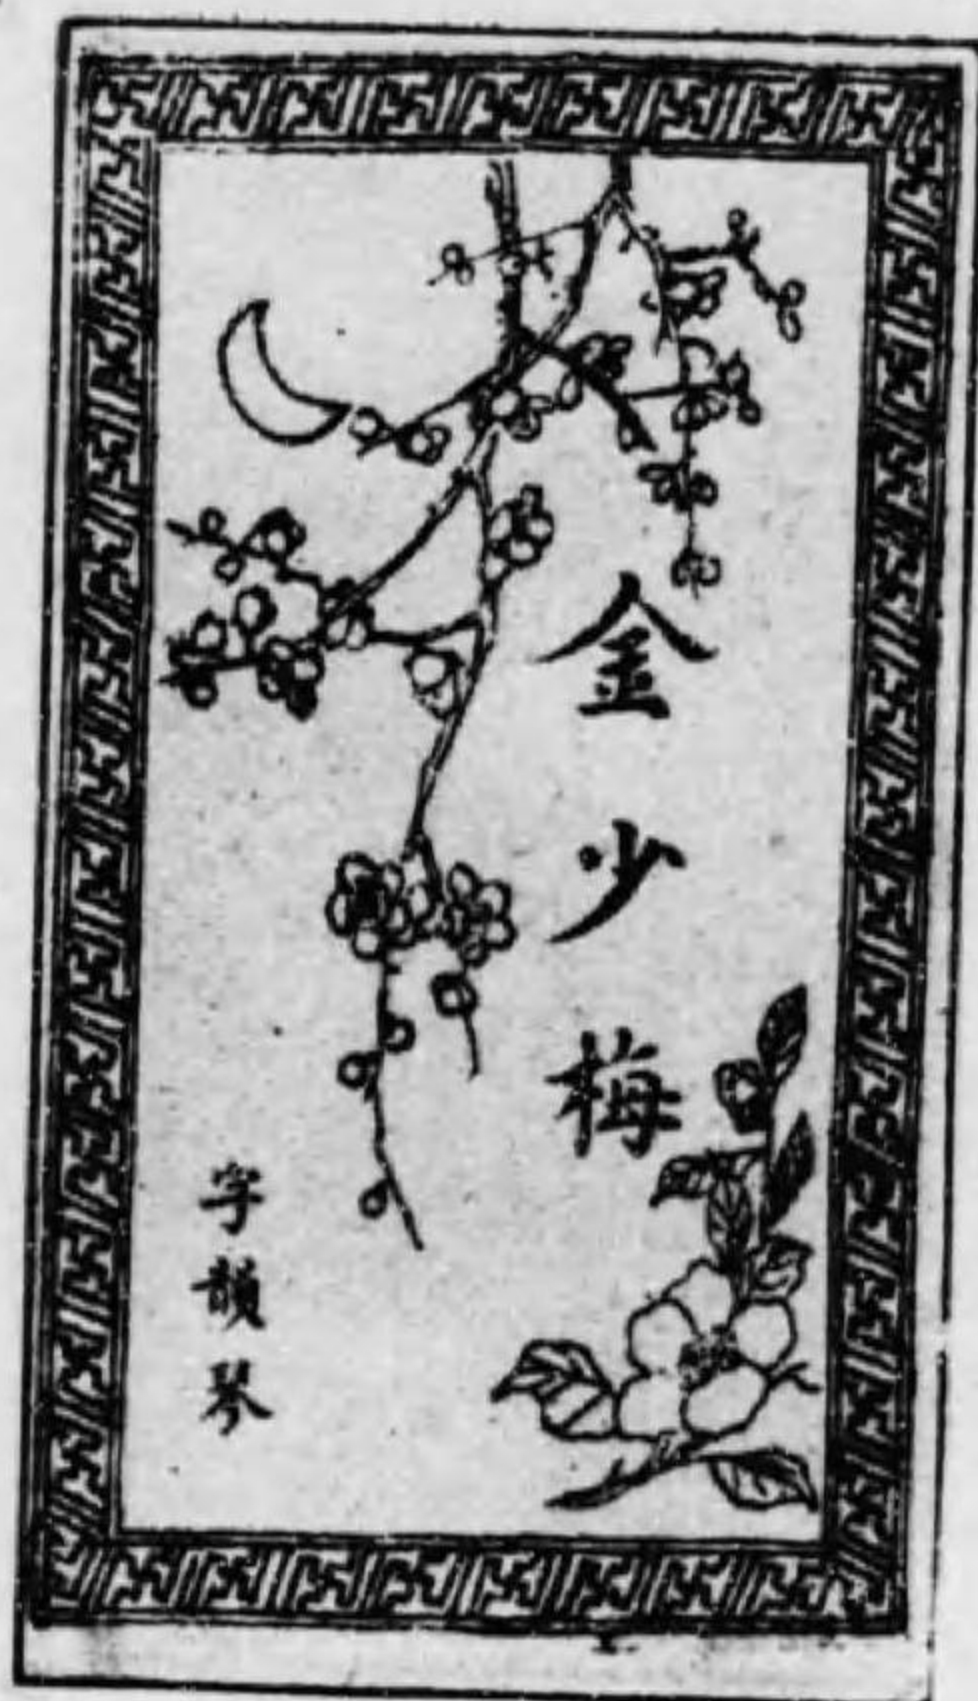 金少梅
字韻琴